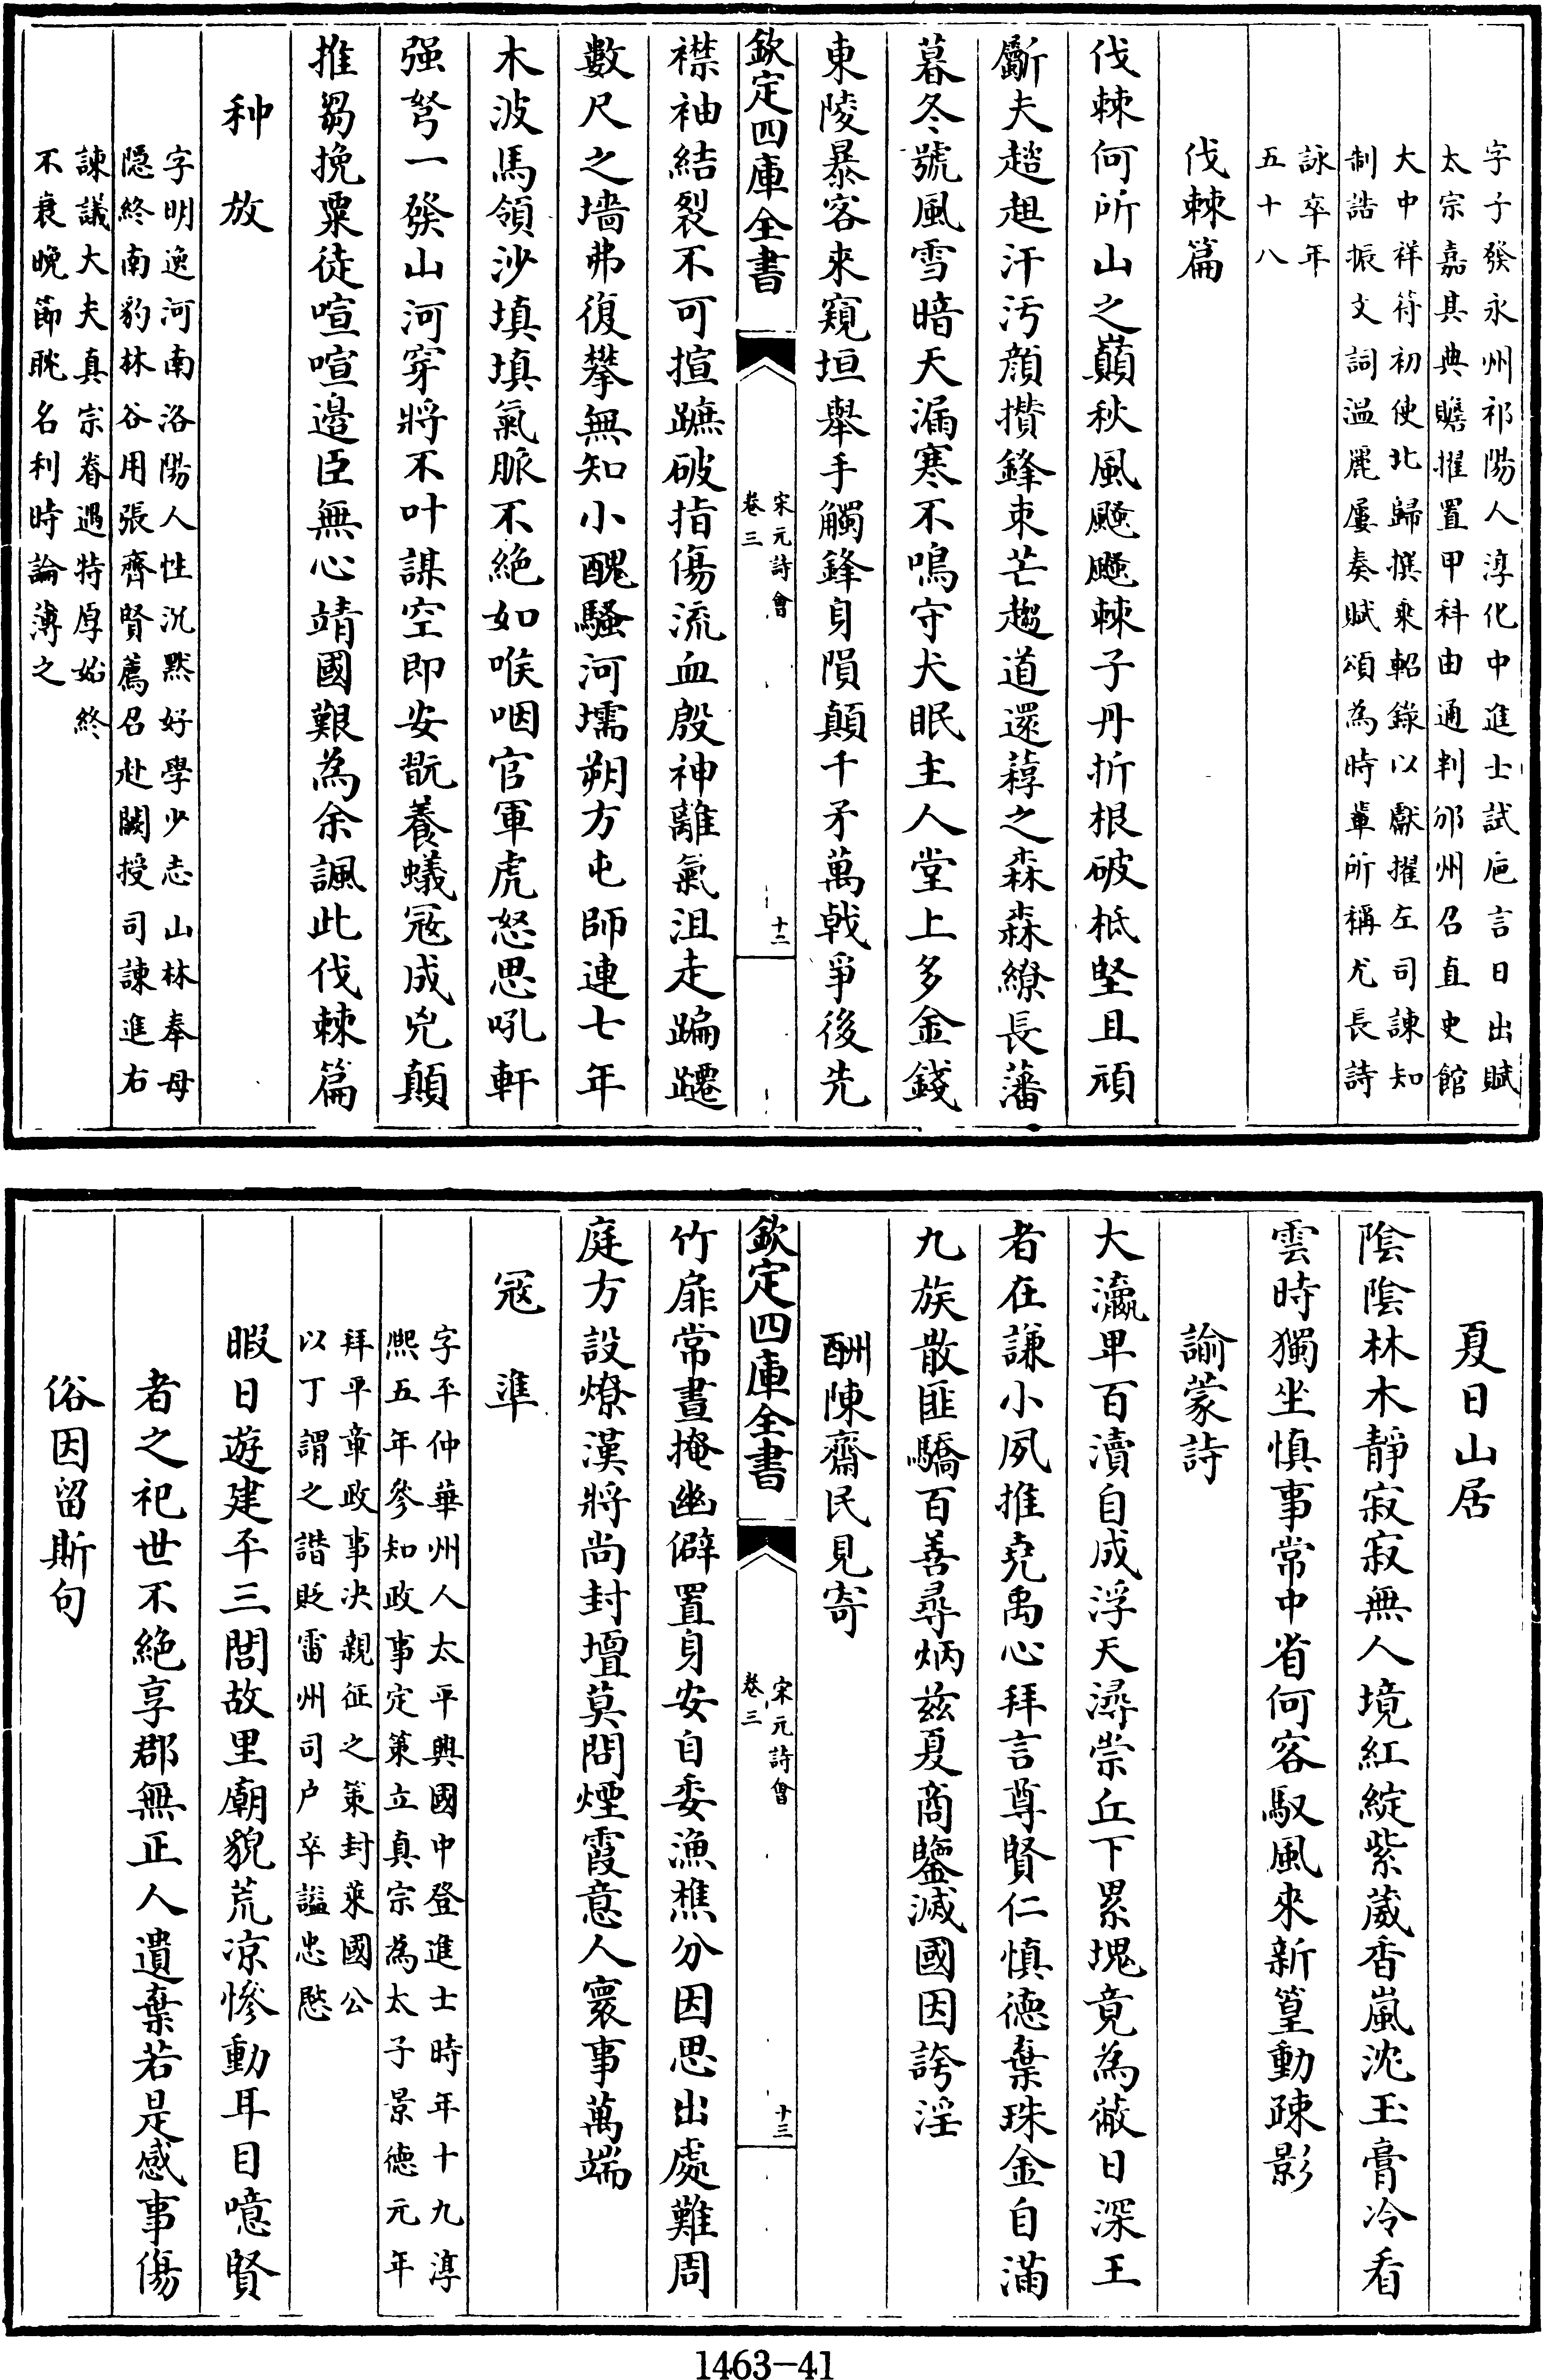 字子發永州祁陽人淳化中進士試巵言日出賦
太宗嘉其典贍擢置甲科由通判邠州召直史館
大中祥符初使北歸撰乘軺錄以獻擢左司諫知
制誥振文詞溫麗屢奏賦頌為時輩所稱尤長詩
詠卒年
五十八
伐棘篇
伐棘何所山之巔秋風颼颼棘子丹折根破柢堅且頑
斸夫趦趄汗汚顔攢鋒束芒趨道還蓴之森森繚長藩
暮冬號風雪暗天漏寒不鳴守犬眠主人堂上多金錢
東陵暴客來窺垣舉手觸鋒身隕顛千矛萬戟爭後先
欽定四庫全書
宋元詩會
卷三
十二
襟袖結裂不可揎蹠破指傷流血殷神離氣沮走蹁躚
數尺之墻弗復攀無知小醜騷河壖朔方屯師連七年
木波馬領沙填填氣脈不絶如喉咽官軍虎怒思吼軒
强弩一發山河穿將不叶謀空即安翫養蟻冦成兇顛
推芻挽粟徒喧喧邉臣無心靖國艱為余諷此伐棘篇
种放
字明逸河南洛陽人性沉黙好學少志山林奉母
隱終南豹林谷用張齊賢薦召赴闕授司諫進右
諫議大夫真宗眷遇特厚始終
不衰晚節眈名利時論薄之
夏日山居
陰陰林木靜寂寂無人境紅綻紫葳香嵐沈玉膏冷看
雲時獨坐慎事常中省何容馭風來新篁動疎影
諭蒙詩
大瀛卑百瀆自成浮天潯崇丘下累塊竟為蔽日深王
者在謙小夙推堯禹心拜言尊賢仁慎徳棄珠金自滿
九族散匪驕百善尋炳兹夏商鑒滅國因誇淫
酬陳齋民見寄
欽定四庫全書
宋元詩會
卷三
十三
竹扉常晝掩幽僻置身安自委漁樵分因思出處難周
庭方設燎漢將尚封壇莫問煙霞意人寰事萬端
冦準
字平仲華州人太平興國中登進士時年十九淳
熙五年參知政事定策立真宗為太子景徳元年
拜平章政事决親征之策封萊國公
以丁謂之譖貶雷州司户卒謚忠愍
暇日遊建平三閭故里廟貌荒凉慘動耳目噫賢
者之祀世不絶享郡無正人遺棄若是感事傷
俗因留斯句
1463-41